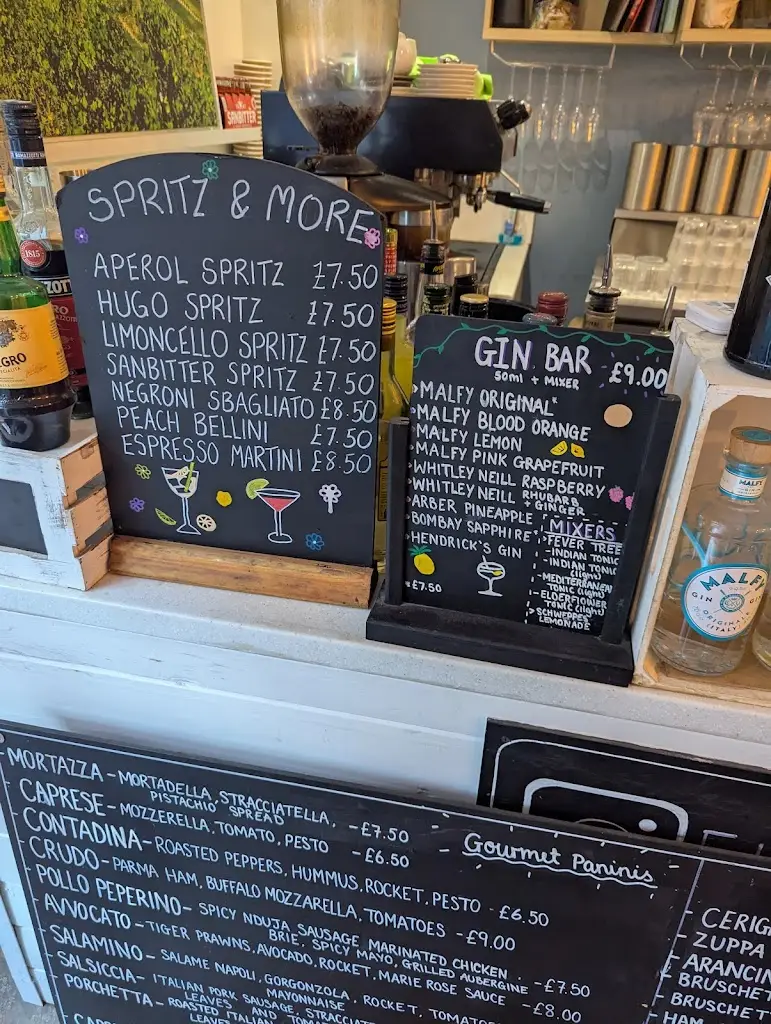 SPRITZ & MORE
APEROL SPRITZ £7.50
HUGO SPRITZ £7.50
LIMONCELLO SPRITZ £7.50
SANBITTER SPRITZ £7.50
NEGRONI SBAGLIATO £8.50
PEACH BELLINI £7.50
ESPRESSO MARTINI £8.50
GIN BAR
50ml + MIXER £9.00
MALFY ORIGINAL*
MALFY BLOOD ORANGE
MALFY LEMON
MALFY PINK GRAPEFRUIT
WHITLEY NEILL RASPBERRY
WHITLEY NEILL RHUBARB
+ GINGER
ARBER PINEAPPLE
BOMBAY SAPPHIRE*
HENDRICK'S GIN
*£7.50
MIXERS
FEVER TREE
-INDIAN TONIC
-INDIAN TONIC
(light)
-MEDITERRANEAN
TONIC (light)
-ELDERFLOWER
TONIC (light)
SCHWEPPES
LEMONADE
SANBITTER
1815
MALFY
GIN
ORIGINALE
ITALY
Gourmet Paninis
MORTAZZA - MORTADELLA, STRACCIATELLA,
PISTACHIO SPREAD -£7.50
CAPRESE - MOZZERELLA, TOMATO, PESTO -£6.50
CONTADINA - ROASTED PEPPERS, HUMMUS, ROCKET, PESTO - £6.50
CRUDO - PARMA HAM, BUFFALO MOZZARELLA, TOMATOES -£9.00
POLLO PEPERINO - SPICY NDUJA SAUSAGE, MARINATED CHICKEN,
BRIE, SPICY MAYO, GRILLED AUBERGINE -£7.50
AVVOCATO - TIGER PRAWNS, AVOCADO, ROCKET, MARIE ROSE SAUCE -£8.00
SALAMINO - SALAME NAPOLI, GORGONZOLA, ROCKET, TOMATO
MAYONNAISE
SALSICCIA - ITALIAN PORK SAUSAGE, STRACCIATE
LEAVES AND TOMA
PORCHETTA - ROASTED ITALIAN
LEAVES
- CERIG
- ZUPPA
- ARANCIN
- BRUSCHET
- BRUSCHET
HAM